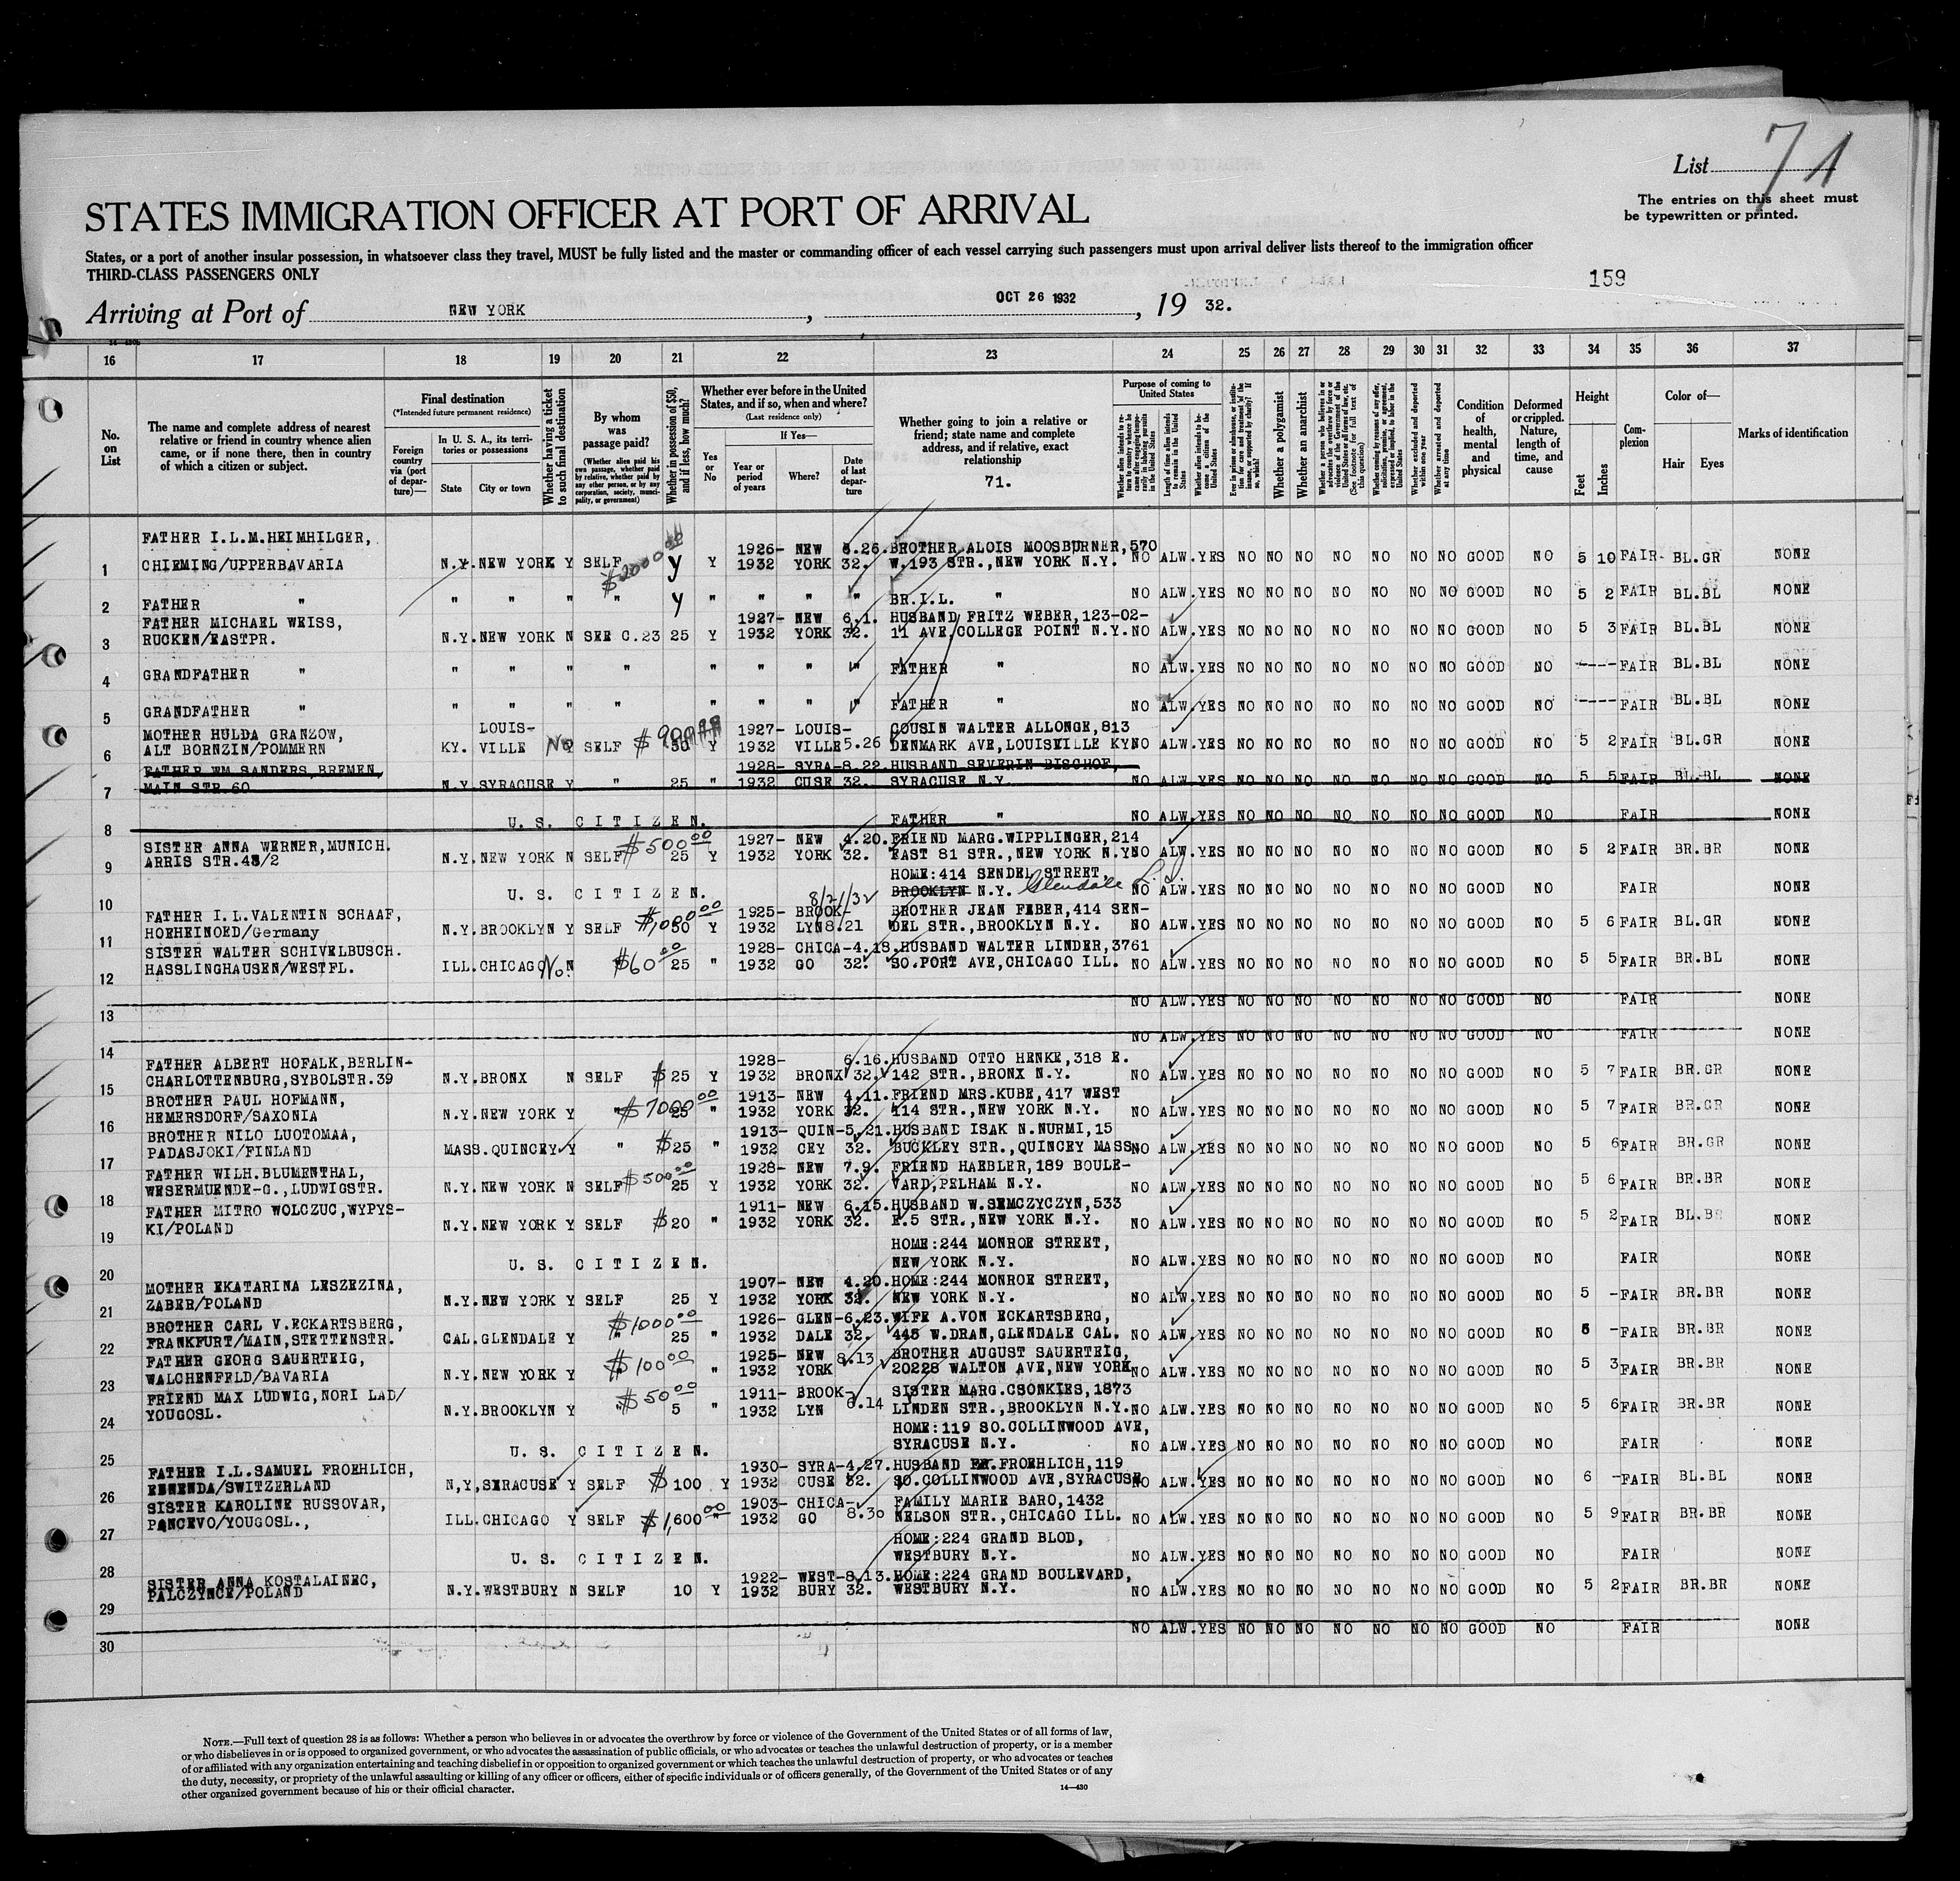 List 71
The entries on this sheet must
be typewritten or printed.
STATES IMMIGRATION OFFICER AT PORT OF ARRIVAL
States, or a port of another insular possession, in whatsoever class they travel, MUST be fully listed and the master or commanding officer of each vessel carrying such passengers must upon arrival deliver lists thereof to the immigration officer
THIRD-CLASS PASSENGERS ONLY
159
Arriving at Port of NEW YORK, OCT 26 1932, 19 32.
16 17 18 19 20 21 22 23 24 25 26 27 28 29 30 31 32 33 34 35 36 37
No. on List
The name and complete address of nearest relative or friend in country whence alien came, or if none there, then in country of which a citizen or subject.
Final destination
(*Intended future permanent residence)
Foreign country via (port of departure)—
In U. S. A., its territories or possessions
State
City or town
Whether having a ticket to such final destination
By whom was passage paid?
(Whether alien paid his own passage, whether paid by relative, whether paid by any other person, or by any corporation, society, municipality, or government)
Whether in possession of $50, and if less, how much?
Whether ever before in the United States, and if so, when and where?
(Last residence only)
Yes or No
If Yes—
Year or period of years
Where?
Date of last departure
Whether going to join a relative or friend; state name and complete address, and if relative, exact relationship
71.
Purpose of coming to United States
Whether alien intends to return to country whence he came after engaging temporarily in laboring pursuits in the United States
Length of time alien intends to remain in the United States
Whether alien intends to become a citizen of the United States
Ever in prison or almshouse, or institution for care and treatment of the insane, or supported by charity? If so, which?
Whether a polygamist
Whether an anarchist
(See footnote for full text of this question)
Whether excluded and deported within one year
Whether arrested and deported at any time
Condition of health, mental and physical
Deformed or crippled. Nature, length of time, and cause
Height
Feet
Inches
Complexion
Color of—
Hair
Eyes
Marks of identification
1 FATHER I.L.M.HEIMHILGER, CHIEMING/UPPERBAVARIA N.Y. NEW YORK Y SELF $2000 00 y Y 1926-1932 NEW YORK 8.26.32. BROTHER ALOIS MOOSBURNER,570 W.193 STR.,NEW YORK N.Y. NO ALW.YES NO NO NO NO NO NO NO GOOD NO 5 10 FAIR BL.GR NONE
2 FATHER " " " " " y " " " " BR.I.L. " NO ALW.YES NO NO NO NO NO NO NO GOOD NO 5 2 FAIR BL.BL NONE
3 FATHER MICHAEL WEISS, RUCKEN/EASTPR. N.Y. NEW YORK N SEE C.23 25 Y 1927-1932 NEW YORK 6.1.32. HUSBAND FRITZ WEBER,123-02-11 AVE,COLLEGE POINT N.Y. NO ALW.YES NO NO NO NO NO NO NO GOOD NO 5 3 FAIR BL.BL NONE
4 GRANDFATHER " " " " " " " " " FATHER " NO ALW.YES NO NO NO NO NO NO NO GOOD NO ---- FAIR BL.BL NONE
5 GRANDFATHER " " " " " " " " " FATHER " NO ALW.YES NO NO NO NO NO NO NO GOOD NO ---- FAIR BL.BL NONE
6 MOTHER HULDA GRANZOW, ALT BORNZIN/POMMERN KY. LOUIS-VILLE No SELF $900 50 Y 1927-1932 LOUIS-VILLE 5.26 COUSIN WALTER ALLONGE,813 DENMARK AVE,LOUISVILLE KY NO ALW.YES NO NO NO NO NO NO NO GOOD NO 5 2 FAIR BL.GR NONE
7 FATHER WM SANDERS,BREMEN, MAIN STR.60 N.Y. SYRACUSE Y " 25 " 1928-1932 SYRA-CUSE 8.22.32. HUSBAND SEVERIN BISCHOF, SYRACUSE N.Y. NO ALW.YES NO NO NO NO NO NO NO GOOD NO 5 5 FAIR BL.BL NONE
8 U. S. C I T I Z E N. FATHER " NO ALW.YES NO NO NO NO NO NO NO GOOD NO FAIR NONE
9 SISTER ANNA WERNER,MUNICH. ARRIS STR.43/2 N.Y. NEW YORK N SELF $500 00 25 Y 1927-1932 NEW YORK 4.20.32. FRIEND MARG.WIPPLINGER,214 EAST 81 STR.,NEW YORK N.Y. NO ALW.YES NO NO NO NO NO NO NO GOOD NO 5 2 FAIR BR.BR NONE
10 U. S. C I T I Z E N. HOME:414 SENDEL STREET, BROOKLYN N.Y. Glendale L.I. NO ALW.YES NO NO NO NO NO NO NO GOOD NO FAIR NONE
11 FATHER I.L.VALENTIN SCHAAF, HOEHEINOED/Germany N.Y. BROOKLYN Y SELF $1,000 00 50 Y 1925-1932 BROOK-LYN 8/21/32 8.21 BROTHER JEAN FABER,414 SEN-DEL STR.,BROOKLYN N.Y. NO ALW.YES NO NO NO NO NO NO NO GOOD NO 5 6 FAIR BL.GR NONE
12 SISTER WALTER SCHIVELBUSCH. HASSLINGHAUSEN/WESTFL. ILL. CHICAGO No. N $60 00 25 " 1928-1932 CHICA-GO 4.18.32. HUSBAND WALTER LINDER,3761 SO.PORT AVE,CHICAGO ILL. NO ALW.YES NO NO NO NO NO NO NO GOOD NO 5 5 FAIR BR.BL NONE
13 NO ALW.YES NO NO NO NO NO NO NO GOOD NO FAIR NONE
14 NO ALW.YES NO NO NO NO NO NO NO GOOD NO FAIR NONE
15 FATHER ALBERT HOFALK,BERLIN-CHARLOTTENBURG,SYBOLSTR.39 N.Y. BRONX N SELF $25 Y 1928-1932 BRONX 6.16.32. HUSBAND OTTO HENKE,318 E. 142 STR.,BRONX N.Y. NO ALW.YES NO NO NO NO NO NO NO GOOD NO 5 7 FAIR BR.GR NONE
16 BROTHER PAUL HOFMANN, HEMERSDORF/SAXONIA N.Y. NEW YORK Y " $7000 00 25 " 1913-1932 NEW YORK 4.11.32. FRIEND MRS.KUBE,417 WEST 114 STR.,NEW YORK N.Y. NO ALW.YES NO NO NO NO NO NO NO GOOD NO 5 7 FAIR BR.GR NONE
17 BROTHER NILO LUOTOMAA, PADASJOKI/FINLAND MASS. QUINCEY Y " $25 " 1913-1932 QUIN-CEY 5.21.32. HUSBAND ISAK N.NURMI,15 BUCKLEY STR.,QUINCEY MASS. NO ALW.YES NO NO NO NO NO NO NO GOOD NO 5 6 FAIR BR.GR NONE
18 FATHER WILH.BLUMENTHAL, WESERMUENDE-G.,LUDWIGSTR. N.Y. NEW YORK N SELF $500 00 25 Y 1928-1932 NEW YORK 7.9.32. FRIEND HAEBLER,189 BOULE-VARD,PELHAM N.Y. NO ALW.YES NO NO NO NO NO NO NO GOOD NO 5 6 FAIR BR.BR NONE
19 FATHER MITRO WOLCZUC,WYPYS-KI/POLAND N.Y. NEW YORK Y SELF $20 " 1911-1932 NEW YORK 6.15.32. HUSBAND W.SEMCZYCZYN,533 E.5 STR.,NEW YORK N.Y. NO ALW.YES NO NO NO NO NO NO NO GOOD NO 5 2 FAIR BL.BR NONE
20 U. S. C I T I Z E N. HOME:244 MONROE STREET, NEW YORK N.Y. NO ALW.YES NO NO NO NO NO NO NO GOOD NO FAIR NONE
21 MOTHER EKATARINA LESZEZINA, ZABER/POLAND N.Y. NEW YORK Y SELF 25 Y 1907-1932 NEW YORK 4.20.32. HOME:244 MONROE STREET, NEW YORK N.Y. NO ALW.YES NO NO NO NO NO NO NO GOOD NO 5 - FAIR BR.BR NONE
22 BROTHER CARL V.ECKARTSBERG, FRANKFURT/MAIN,STETTENSTR. CAL. GLENDALE Y " $1000 00 25 " 1926-1932 GLEN-DALE 6.23.32. WIFE A.VON ECKARTSBERG, 445 W.DRAN,GLENDALE CAL. NO ALW.YES NO NO NO NO NO NO NO GOOD NO 6 - FAIR BR.BR NONE
23 FATHER GEORG SAUERTEIG, WALCHENFELD/BAVARIA N.Y. NEW YORK Y " $100 00 " 1925-1932 NEW YORK 8.13 BROTHER AUGUST SAUERTEIG, 20228 WALTON AVE,NEW YORK NO ALW.YES NO NO NO NO NO NO NO GOOD NO 5 3 FAIR BR.BR NONE
24 FRIEND MAX LUDWIG,NORI LAD/YOUGOSL. N.Y. BROOKLYN Y " $50 00 5 " 1911-1932 BROOK-LYN 6.14 SISTER MARG.CSONKIES,1873 LINDEN STR.,BROOKLYN N.Y. NO ALW.YES NO NO NO NO NO NO NO GOOD NO 5 6 FAIR BR.BR NONE
25 U. S. C I T I Z E N. HOME:119 SO.COLLINWOOD AVE, SYRACUSE N.Y. NO ALW.YES NO NO NO NO NO NO NO GOOD NO FAIR NONE
26 FATHER I.L.SAMUEL FROEHLICH, ENNENDA/SWITZERLAND N,Y, SYRACUSE Y SELF $100 Y 1930-1932 SYRA-CUSE 4.27.32. HUSBAND FR.FROEHLICH,119 SO.COLLINWOOD AVE,SYRACUSE NO ALW.YES NO NO NO NO NO NO NO GOOD NO 6 - FAIR BL.BL NONE
27 SISTER KAROLINE RUSSOVAR, PANCEVO/YOUGOSL., ILL. CHICAGO Y SELF $1,600 00 " 1903-1932 CHICA-GO 8.30 FAMILY MARIE BARO,1432 NELSON STR.,CHICAGO ILL. NO ALW.YES NO NO NO NO NO NO NO GOOD NO 5 9 FAIR BR.BR NONE
28 U. S. C I T I Z E N. HOME:224 GRAND BLOD, WESTBURY N.Y. NO ALW.YES NO NO NO NO NO NO NO GOOD NO FAIR NONE
29 SISTER ANNA KOSTALAINEC, PALCZYNCE/POLAND N.Y. WESTBURY N SELF 10 Y 1922-1932 WEST-BURY 8.13.32. HOME:224 GRAND BOULEVARD, WESTBURY N.Y. NO ALW.YES NO NO NO NO NO NO NO GOOD NO 5 2 FAIR BR.BR NONE
30 NO ALW.YES NO NO NO NO NO NO NO GOOD NO FAIR NONE
NOTE.—Full text of question 28 is as follows: Whether a person who believes in or advocates the overthrow by force or violence of the Government of the United States or of all forms of law,
or who disbelieves in or is opposed to organized government, or who advocates the assassination of public officials, or who advocates or teaches the unlawful destruction of property, or is a member
of or affiliated with any organization entertaining and teaching disbelief in or opposition to organized government or which teaches the unlawful destruction of property, or who advocates or teaches
the duty, necessity, or propriety of the unlawful assaulting or killing of any officer or officers, either of specific individuals or of officers generally, of the Government of the United States or of any
other organized government because of his or their official character.
14—430